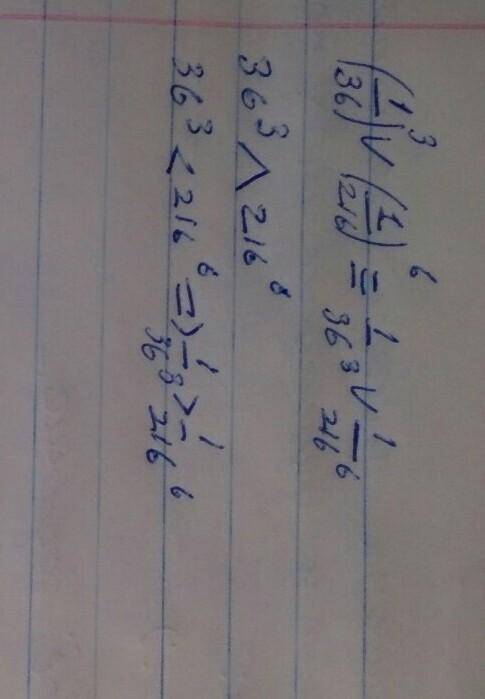 (1/36)³ ∨ (1/216)⁶ = 1/36³ ∨ 1/216⁶
36³ ∧ 216⁶
36³ < 216⁶ ⇒ 1/36³ > 1/216⁶